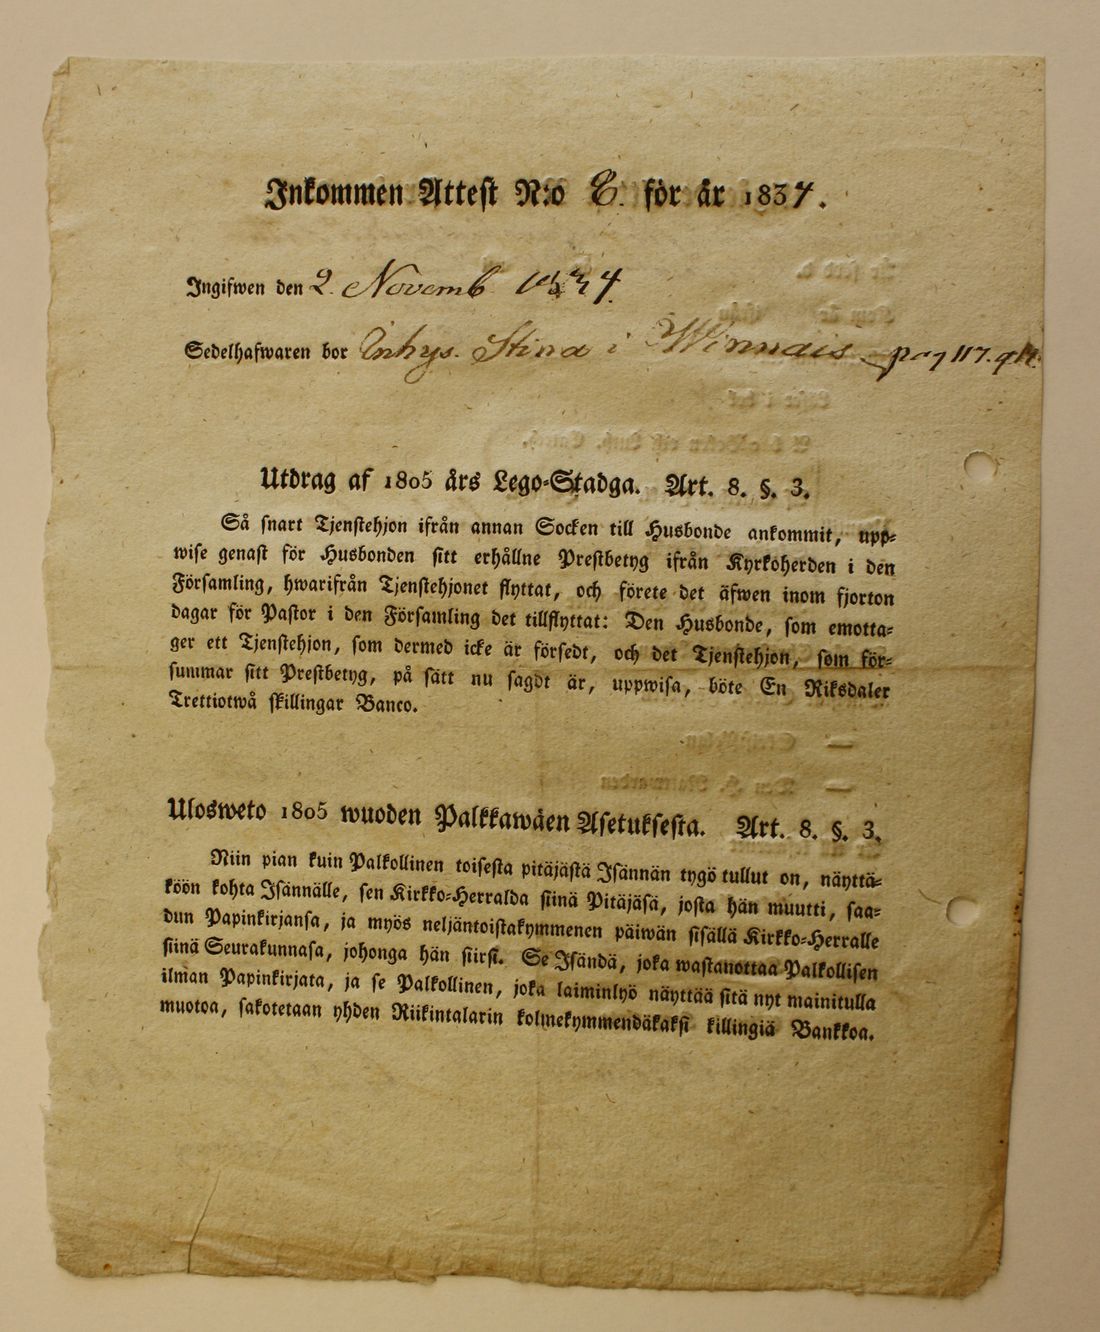 Inkommen Attest N:o E. för år 1834.
Ingifwen den 2. Novemb 1834.
Sedelhafwaren bor Inhys. Stina i Winnais pag 117.
Utdrag af 1805 års Lego-Stadga. Art. 8. §. 3.
Så snart Tjenstehjon ifrån annan Socken till Husbonde ankommit, upp-
wise genast för Husbonden sitt erhållne Prestbetyg ifrån Kyrkoherden i den
Församling, hwarifrån Tjenstehjonet flyttat, och förete det äfwen inom fjorton
dagar för Pastor i den Församling det tillflyttat: Den Husbonde, som emotta-
ger ett Tjenstehjon, som dermed icke är försedt, och det Tjenstehjon, som för-
summar sitt Prestbetyg, på sätt nu sagdt är, uppwisa, böte En Riksdaler
Trettiotwå skillingar Banco.
Ulosweto 1805 wuoden Palkkawäen Asetuksesta. Art. 8. §. 3.
Niin pian kuin Palkollinen toisesta pitäjästä Isännän tygö tullut on, näyttä-
köön kohta Isännälle, sen Kirkko-Herralda siinä Pitäjäsä, josta hän muutti, saa-
dun Papinkirjansa, ja myös neljäntoistakymmenen päiwän sisällä Kirkko-Herralle
siinä Seurakunnasa, johonga hän siirsi. Se Isändä, joka wastanottaa Palkollisen
ilman Papinkirjata, ja se Palkollinen, joka laiminlyö näyttää sitä nyt mainitulla
muotoa, sakotetaan yhden Riikintalarin kolmekymmendäkaksi killingiä Bankkoa.